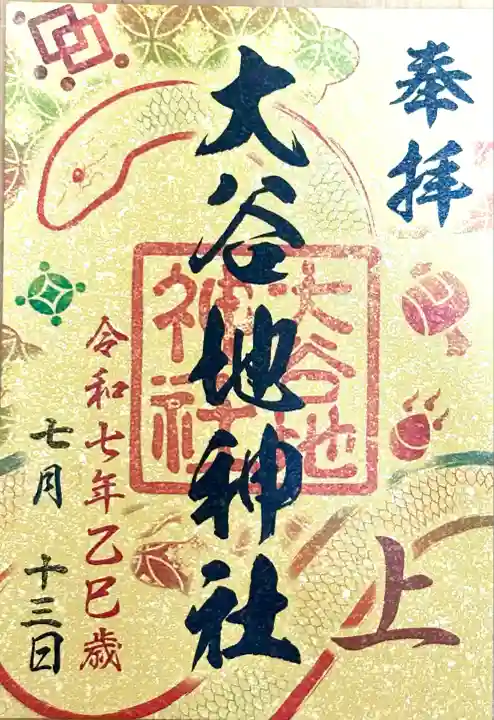 奉拝
上
大谷地神社
大谷地
神社
令和七年乙巳歳
七月 十三日